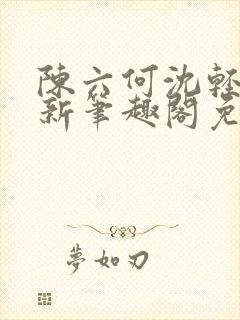 陳六何沈輕
新筆趣閣免
夢如刃